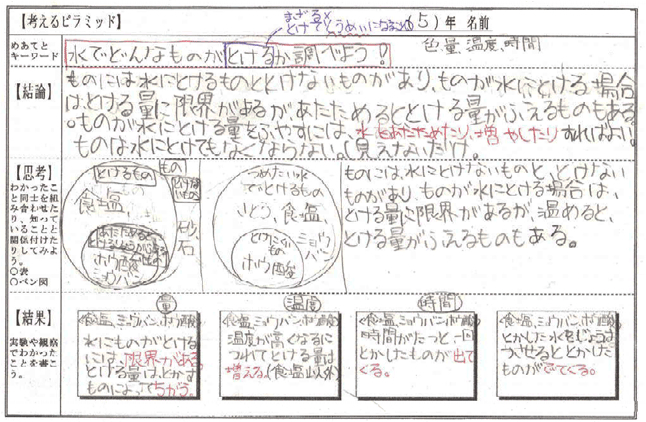 まざる×
とけて、とうめいになること
【考えるピラミッド】
(5)年 名前
めあてと
キーワード
水でどんなものがとけるか調べよう!
色、量、温度、時間
【結論】
ものには水にとけるものととけないものがあり、ものが水にとける場合
は、とける量に限界があるが、あたためるととける量がふえるものもある。
ものが水にとける量をふやすには、水をあたためたり、増やしたりすればよい。
ものは水にとけてもなくならない。(見えないだけ。
【思考】
わかったこ
と同士を組
み合わせた
り、知って
いることと
関係付けた
りしてみよ
う。
○表
○ベン図
とけるもの
もの
とけない
もの
食塩
砂
石
あたためると
ホウ酸
ミョウバン
つめたい水
でとけるもの
さとう、食塩、ミョウバン
とけにくい
もの
ホウ酸
ものには、水にとけないものと、とけない
ものがあり、ものが水にとける場合は、
とける量に限界があるが、温めると、
とける量がふえるものもある。
【結果】
実験や観察
でわかった
ことを書こ
う。
量
(食塩、ミョウバン、ホウ酸)
水にものがとける
には、限界がある
とける量は、とかす
ものによってちがう。
温度
(食塩、ミョウバン、ホウ酸)
温度が高くなるに
つれてとける量は
増える。(食塩以外)
時間
(食塩、ミョウバン、ホウ酸)
時間がたつと一回
とかしたものが出て
くる。
(食塩、ミョウバン、ホウ酸)
とかした水をじょうは
つさせるととかした
ものがでてくる。